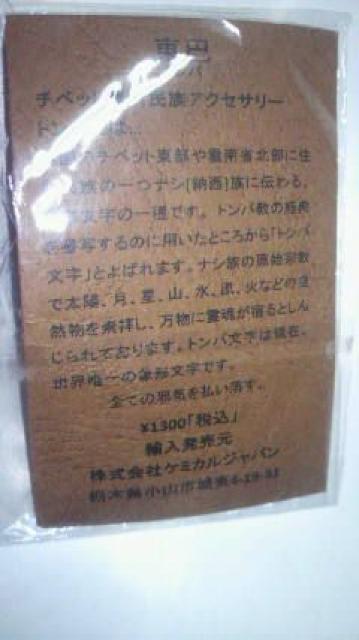 東巴
チベット 民族アクセサリー
トン は…
チベット東部や雲南省北部に住
族の一つナシ[納西]族に伝わる、
文字の一種です。トンパ教の経典
を書写するのに用いたところから「トンパ
文字」とよばれます。ナシ族の原始宗教
で太陽、月、星、山、水、風、火などの自
然物を崇拝し、万物に霊魂が宿るとしん
じられております。トンパ文字は現在、
世界唯一の象形文字です。
全ての邪気を払い消す。
¥1300「税込」
輸入発売元
株式会社ケミカルジャパン
栃木県小山市城東4-19-31